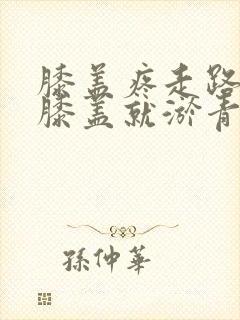 膝盖疼走路
膝盖就淤青
孫仲華